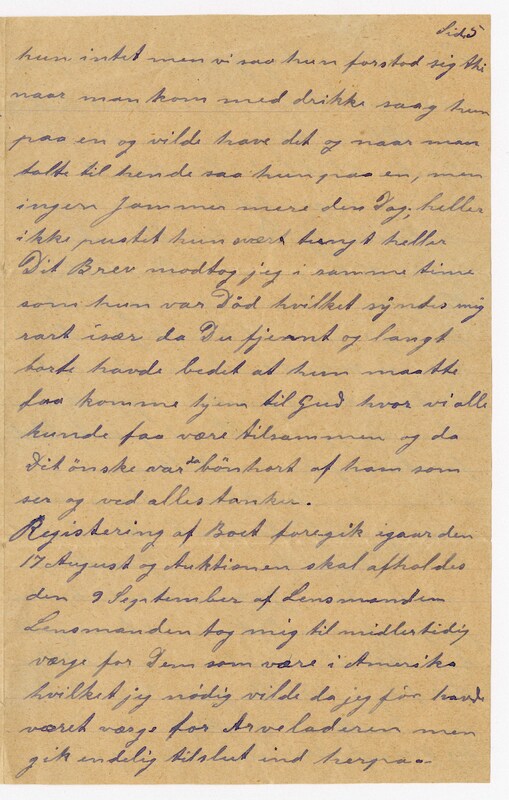 Side 5
hun intet men vi saa hun forstod sig thi
naar man kom med drikke saag hun
paa en og vilde have det og naar man
talte til hende saa hun paa en, men
ingen Jammer mere den Dag, heller
ikke pustet hun svært tungt heller
Dit Brev modtog jeg i samme time
som hun var Död hvilket syndes mig
rart især da Du fjernt og langt
borte havde bedet at hun maatte
faa komme hjem til Gud hvor vi alle
kunde faa være tilsammen og da
Dit önske var da bönhört af ham som
ser og ved alles tanker.
Registering af Boet foregik igaar den
17 August og Auktionen skal afholdes
den 9 September af Lensmanden
Lensmanden tog mig til midlertidig
værge for Dem som være i Amerika
hvilket jeg nödig vilde da jeg för havde
været værge for Arveladeren men
gik endelig tilslut ind herpaa.